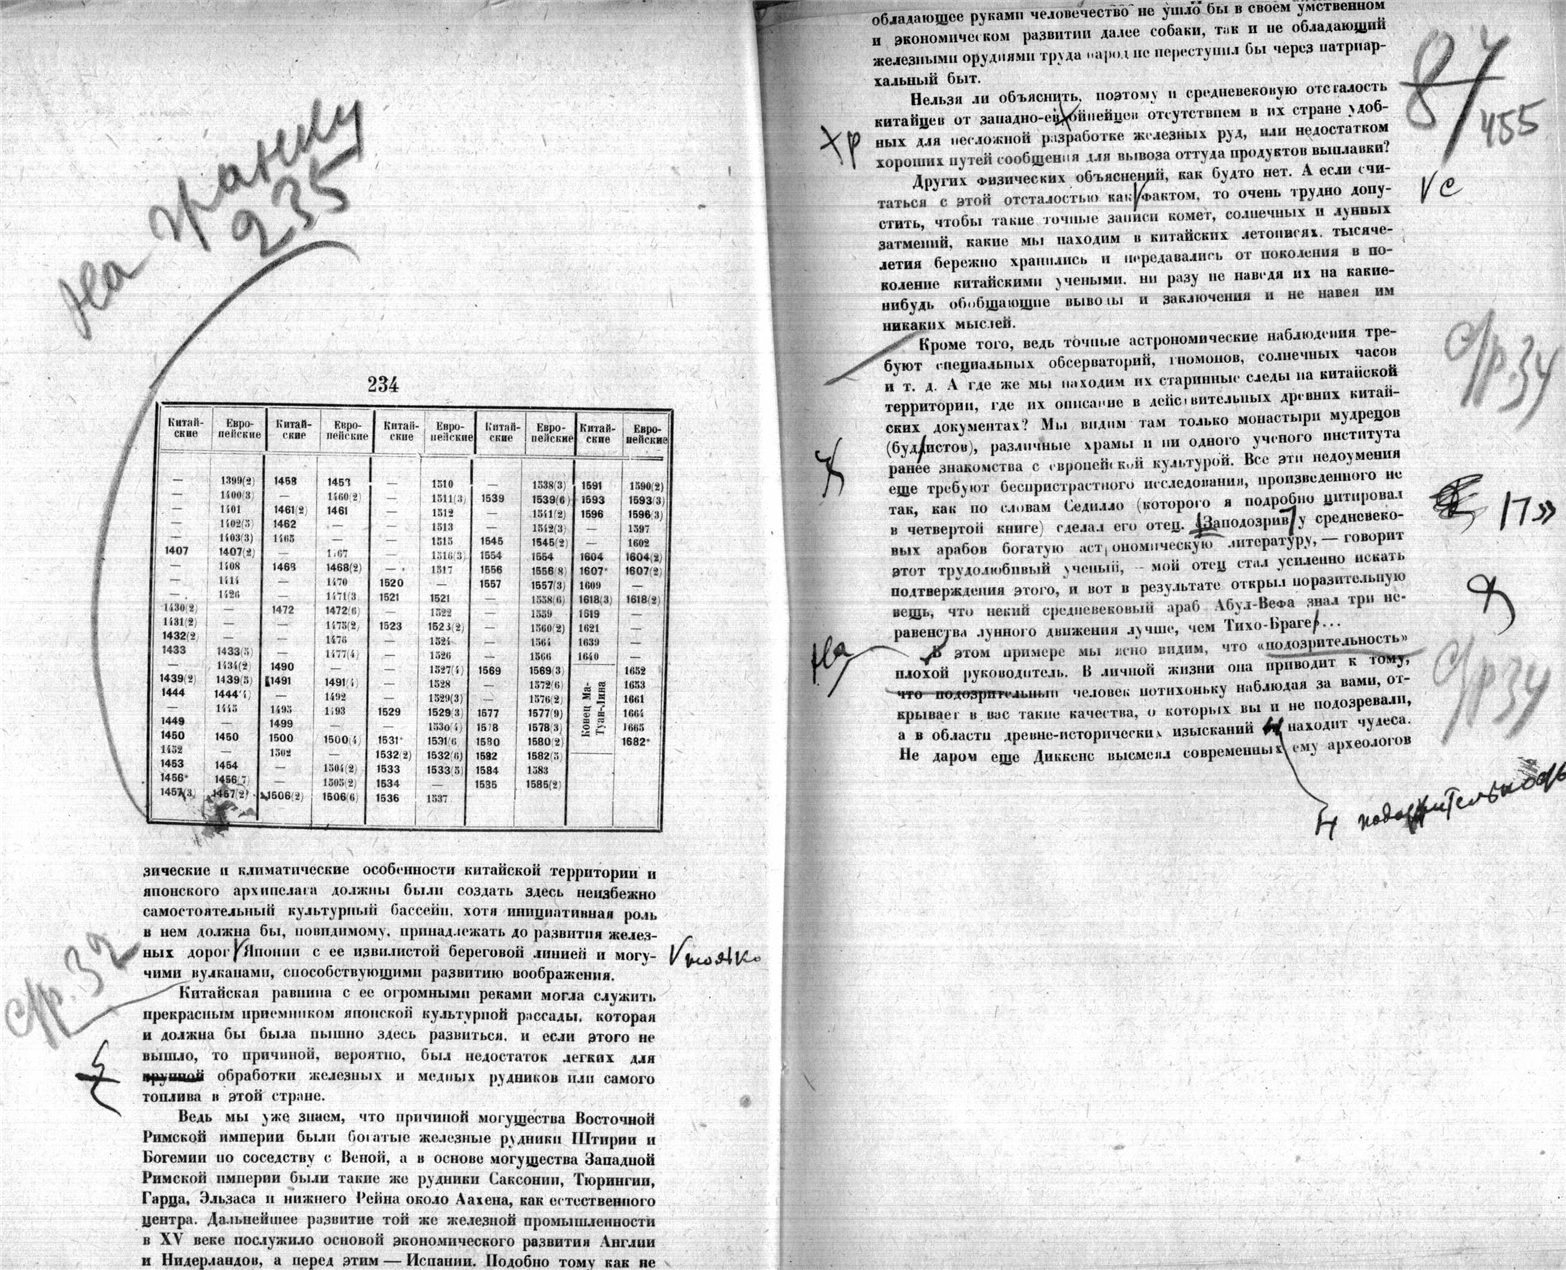 на гранку
235
234
Китай-
ские
Евро-
пейские
Китай-
ские
Евро-
пейские
Китай-
ские
Евро-
пейские
Китай-
ские
Евро-
пейские
Китай-
ские
Евро-
пейские
— 1399(2) 1458 1457 — 1510 — 1538(3) 1591 1590(2)
— 1400(3) — 1460(2) — 1511(3) 1539 1539(6) 1593 1593(3)
— 1401 1461(2) 1461 — 1512 — 1541(2) 1596 1596(3)
— 1402(3) 1462 — — 1513 — 1542(3) — 1597
— 1403(3) 1465 — — 1515 1545 1545(2) — 1602
1407 1407(2) — 1467 — 1516(3) 1554 1554 1604 1604(2)
— 1408 1468 1468(2) — 1517 1556 1556(8) 1607* 1607(2)
— 1414 — 1470 1520 — 1557 1557(3) 1609 —
— 1426 — 1471(3) 1521 1521 — 1558(6) 1618(3) 1618(2)
1430(2) — 1472 1472(6) — 1522 — 1559 1619 —
1431(2) — — 1473(2) 1523 1523(2) — 1560(2) 1621 —
1432(2) — — 1476 — 1524 — 1564 1639 —
1433 1433(5) — 1477(4) — 1526 — 1566 1640 —
— 1434(2) 1490 — — 1527(4) 1569 1569(3) 1652
1439(2) 1439(5) 1491 1491(4) — 1528 — 1572(6) 1653
1444 1444(4) — 1492 — 1529(3) — 1576(2) 1661
— 1445 1493 1493 1529 1529(3) 1577 1577(9) 1664
1449 — 1499 — — 1530(4) 1578 1578(3) 1665
1450 1450 1500 1500(4) 1531* 1531(6) 1580 1580(2) 1682*
1452 — 1502 — 1532(2) 1532(6) 1582 1582(5)
1453 1454 — 1504(2) 1533 1533(5) 1584 1583
1456* 1456(7) — 1505(2) 1534 — 1585 1585(2)
1457(3) 1457(2) 1506(2) 1506(6) 1536 1537
Конец Ма-
Туан-Лина
зические и климатические особенности китайской территории и
японского архипелага должны были создать здесь неизбежно
самостоятельный культурный бассейн, хотя инициативная роль
в нем должна бы, повидимому, принадлежать до развития желез-
ных дорог Японии с ее извилистой береговой линией и могу-
только
чими вулканами, способствующими развитию воображения.
стр. 32
Китайская равнина с ее огромными реками могла служить
прекрасным приемником японской культурной рассады, которая
и должна бы была пышно здесь развиться, и если этого не
вышло, то причиной, вероятно, был недостаток легких для
ручной обработки железных и медных рудников или самого
топлива в этой стране.
Ведь мы уже знаем, что причиной могущества Восточной
Римской империи были богатые железные рудники Штирии и
Богемии по соседству с Веной, а в основе могущества Западной
Римской империи были такие же рудники Саксонии, Тюрингии,
Гарца, Эльзаса и нижнего Рейна около Аахена, как естественного
центра. Дальнейшее развитие той же железной промышленности
в XV веке послужило основой экономического развития Англии
и Нидерландов, а перед этим — Испании. Подобно тому как не
обладающее руками человечество не ушло бы в своем умственном
и экономическом развитии далее собаки, так и не обладающий
железными орудиями труда народ не переступил бы через патриар-
хальный быт.
87
455
Нельзя ли объяснить, поэтому и средневековую отсталость
китайцев от западно-евойпейцев отсутствием в их стране удоб-
р
ных для несложной разработке железных руд, или недостатком
хороших путей сообщения для вывоза оттуда продуктов выплавки?
Других физических объяснений, как будто нет. А если счи-
таться с этой отсталостью как фактом, то очень трудно допу-
с
стить, чтобы такие точные записи комет, солнечных и лунных
затмений, какие мы находим в китайских летописях, тысяче-
летия бережно хранились и передавались от поколения в по-
коление китайскими учеными, ни разу не наведя их на какие-
нибудь обобщающие выводы и заключения и не навея им
никаких мыслей.
стр. 34
Кроме того, ведь точные астрономические наблюдения тре-
буют специальных обсерваторий, гномонов, солнечных часов
и т. д. А где же мы находим их старинные следы на китайской
территории, где их описание в действительных древних китай-
ских документах? Мы видим там только монастыри мудрецов
(буддистов), различные храмы и ни одного ученого института
ранее знакомства с европейской культурой. Все эти недоумения
еще требуют беспристрастного исследования, произведенного не
так, как по словам Седилло (которого я подробно цитировал
в четвертой книге) сделал его отец. Заподозрив у средневеко-
вых арабов богатую астрономическую литературу, — говорит
этот трудолюбивый ученый, — мой отец стал усиленно искать
подтверждения этого, и вот в результате открыл поразительную
вещь, что некий средневековый араб Абул-Вефа знал три не-
равенства лунного движения лучше, чем Тихо-Браге!...
На
В этом примере мы ясно видим, что «подозрительность»
плохой руководитель. В личной жизни она приводит к тому,
что подозрительный человек потихоньку наблюдая за вами, от-
крывает в вас такие качества, о которых вы и не подозревали,
а в области древне-исторических изысканий находит чудеса.
Не даром еще Диккенс высмеял современных ему археологов
стр 34
подозрительность